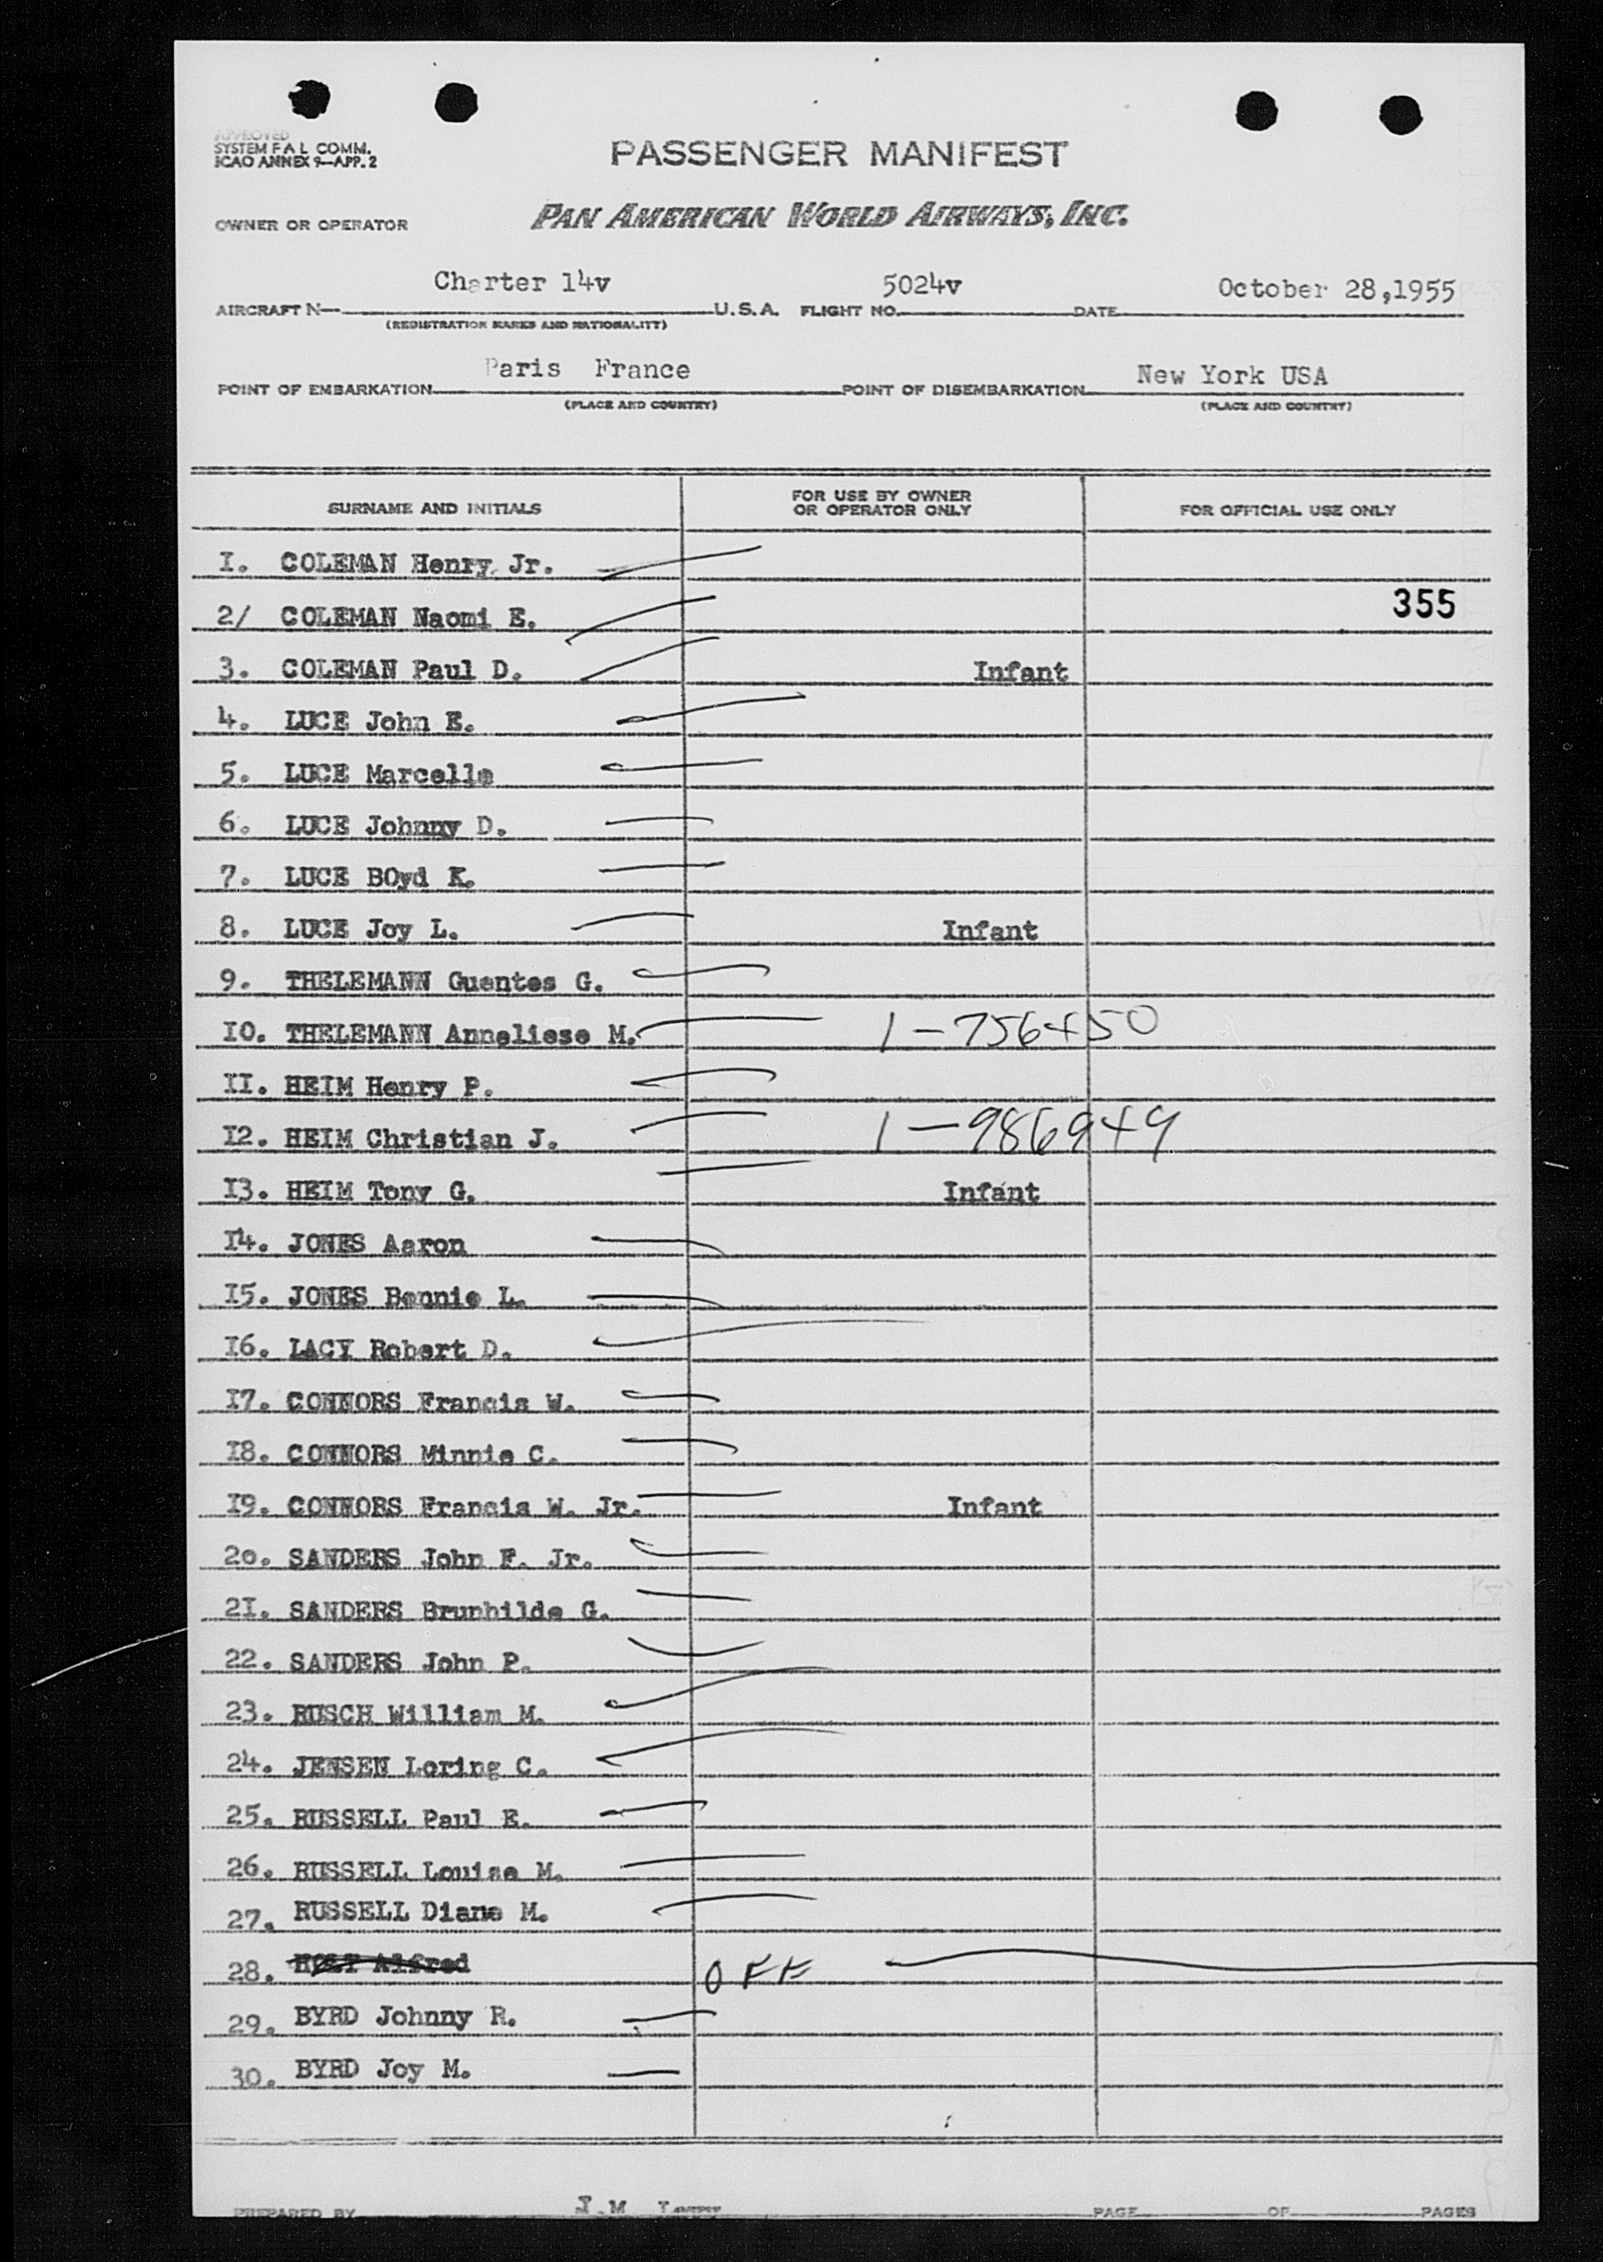 APPROVED
SYSTEM F A L COMM.
ICAO ANNEX 9—APP. 2
PASSENGER MANIFEST
OWNER OR OPERATOR PAN AMERICAN WORLD AIRWAYS, INC.
Charter 14v 5024v October 28,1955
AIRCRAFT N— U.S.A. FLIGHT NO. DATE
(REGISTRATION MARKS AND NATIONALITY)
Paris France New York USA
POINT OF EMBARKATION POINT OF DISEMBARKATION
(PLACE AND COUNTRY) (PLACE AND COUNTRY)
SURNAME AND INITIALS FOR USE BY OWNER OR OPERATOR ONLY FOR OFFICIAL USE ONLY
I. COLEMAN Henry Jr.
2/ COLEMAN Naomi E. 355
3. COLEMAN Paul D. Infant
4. LUCE John E.
5. LUCE Marcelle
6. LUCE Johnny D.
7. LUCE BOyd K.
8. LUCE Joy L. Infant
9. THELEMANN Guentes G.
IO. THELEMANN Anneliese M. 1-756450
II. HEIM Henry P.
I2. HEIM Christian J. 1-986949
I3. HEIM Tony G. Infant
I4. JONES Aaron
I5. JONES Bennie L.
I6. LACY Robert D.
I7. CONNORS Francis W.
I8. CONNORS Minnie C.
I9. CONNORS Francis W. Jr. Infant
20. SANDERS John F. Jr.
2I. SANDERS Brunhilde G.
22. SANDERS John P.
23. RUSCH William M.
24. JENSEN Loring C.
25. RUSSELL Paul E.
26. RUSSELL Louise M.
27. RUSSELL Diane M.
28. Alfred OFF
29. BYRD Johnny R.
30. BYRD Joy M.
PREPARED BY J.M PAGE OF PAGES